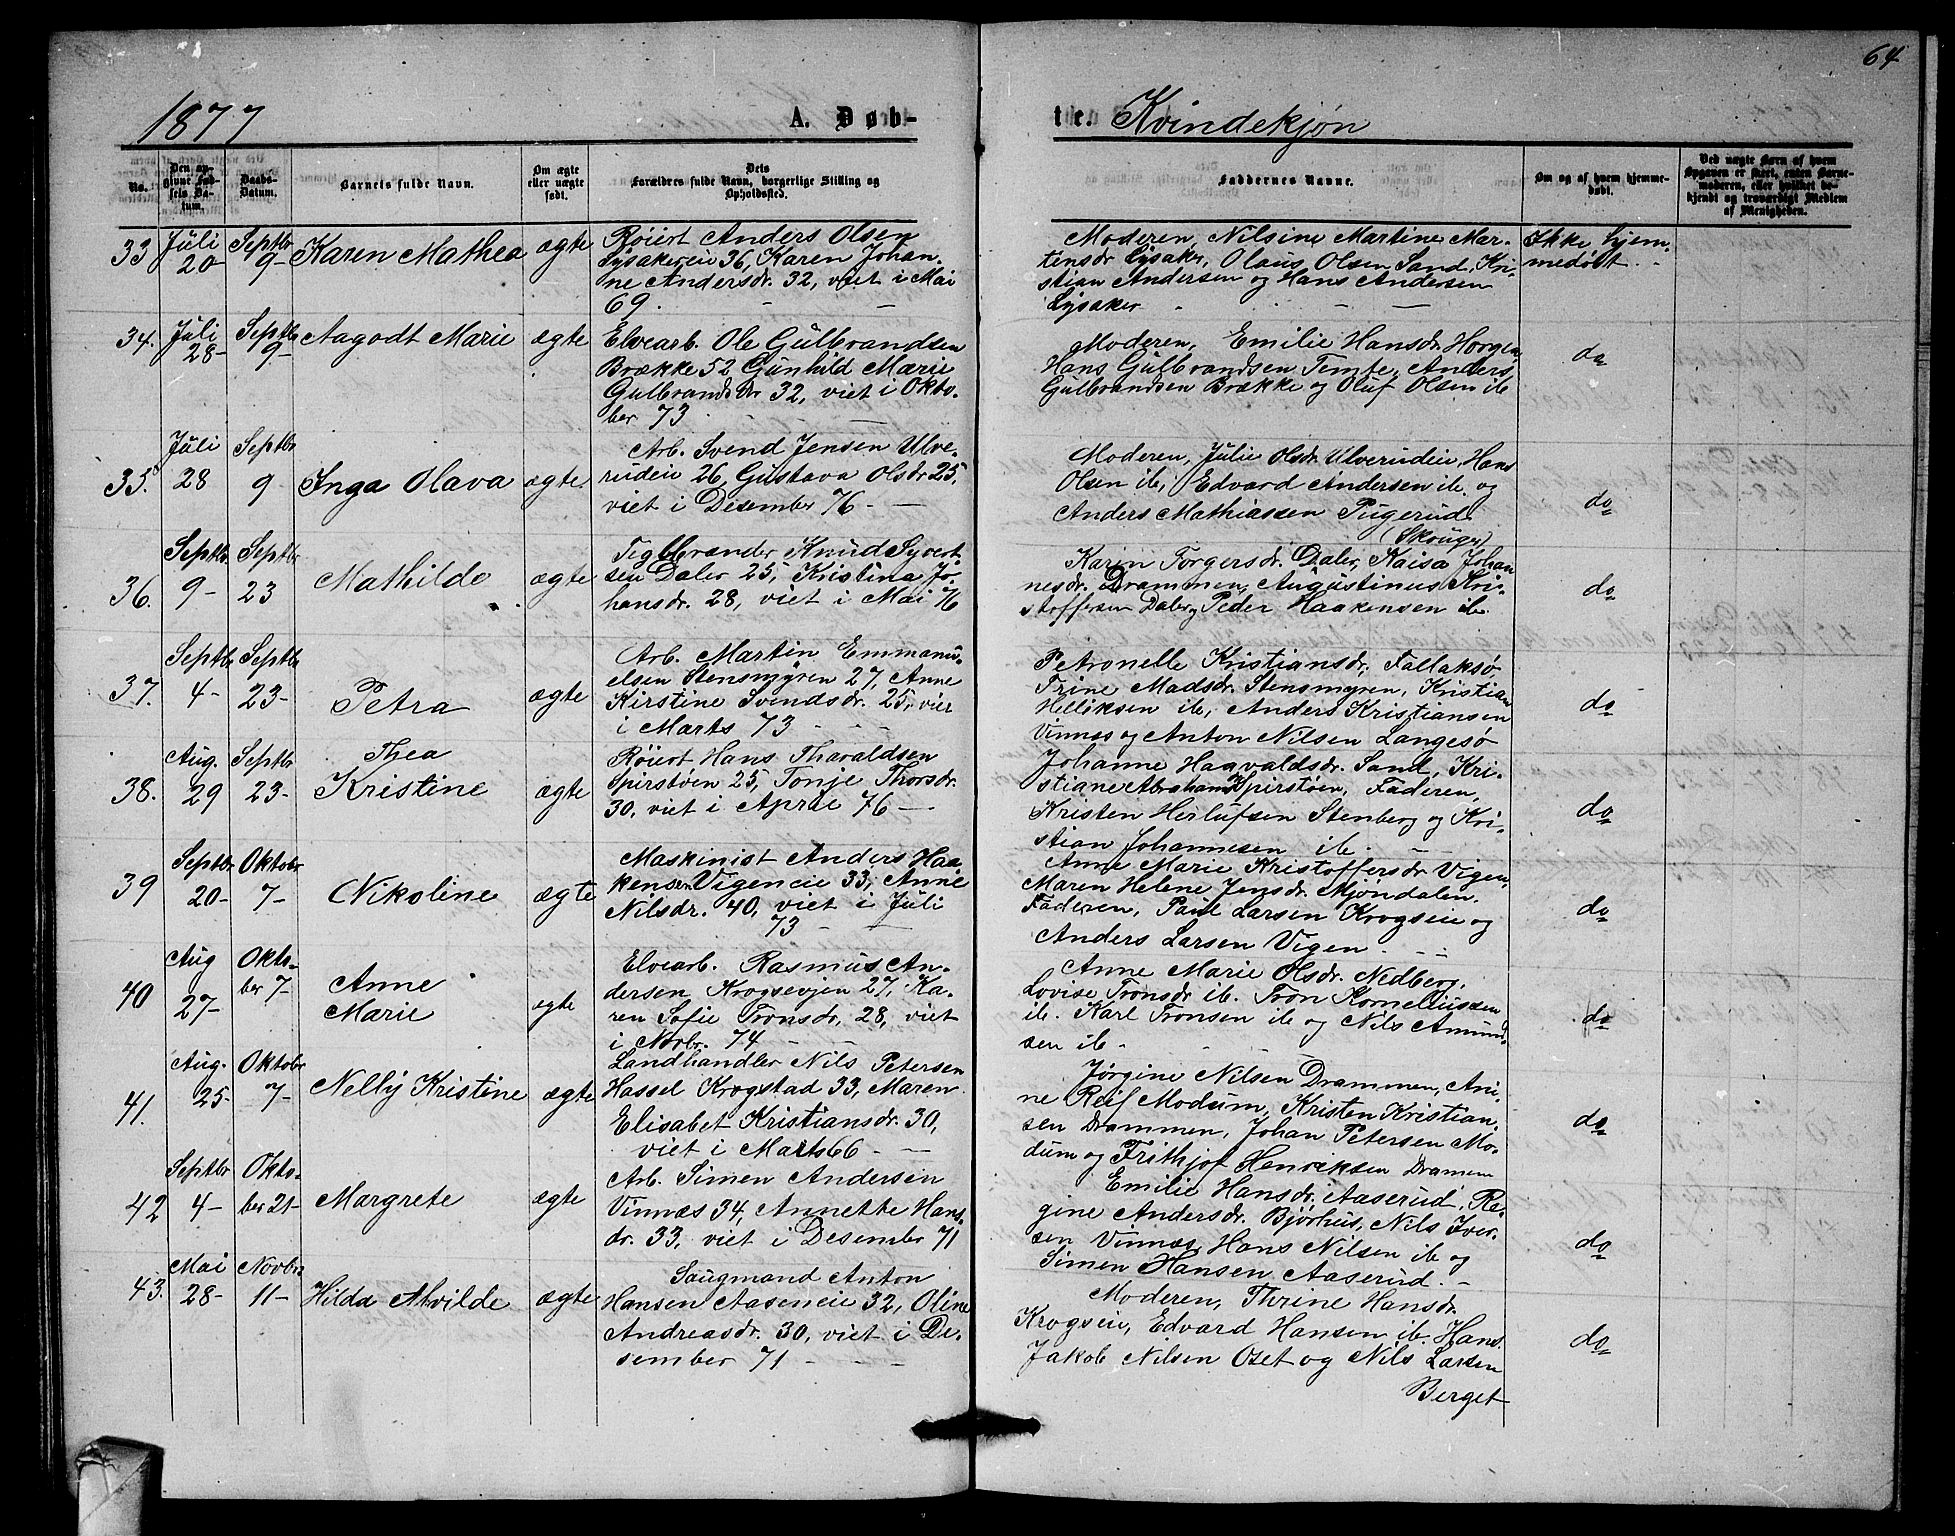 64
1877 A. Døb-
te. Kvindekjøn
No.
Den angivne Fødsels Datum.
Daabs-Datum.
Barnets fulde Navn.
Om ægte eller uægte født.
Dets Forældres fulde Navn, borgerlige Stilling og Opholdssted.
Faddernes Navne.
Om og af hvem hjemmedøbt.
Ved uægte Børn af hvem Opgaven er skeet, enten Barnemoderen, eller hvilket bekjendt og troværdigt Medlem af Menigheden.
33 Juli 20- Septbr 9- Karen Mathea ægte
Røiert Anders Olsen
Lysakereie 36, Karen Johan-
ne Andersdr. 32, viet i Mai
69.
Moderen, Nilsine Martine Mar-
tinsdr Lysaker, Olaus Olsen Sand, Kri-
stian Andersen og Hans Andersen
Lysaker
Ikke hjem-
medøbt
34. Juli 28- Septbr 9- Aagodt Marie ægte
Elvearb. Ole Gulbrandsen
Brække 52 Gunhild Marie
Gulbrandsdr 32, viet i Okto-
ber 73
Moderen, Emilie Hansdr. Horgen,
Hans Gulbrandsen Temte, Anders
Gulbrandsen Brække og Oluf Olsen ib
do
35. Juli 28 Septbr 9 Inga Olava ægte
Arb. Svend Jensen Ulve-
rudeie 26, Gustava Olsdr 25,
viet i Desember 76
Moderen, Julie Olsdr. Ulverudeie, Hans
Olsen ib, Edvard Andersen ib. og
Anders Mathiassen Pugerud
(Skouger)
do
36. Septbr. 9- Septbr. 23 Mathilde ægte
Teglbrænder Knud Syvert
sen Daler 25, Kristina Jo-
hansdr. 28, viet i Mai 76
Karin Torgersdr. Daler, Kaisa Johan
nesdr. Drammen, Augustinus Kri-
stoffersen Daler, Peder Haakensen ib.
do
37. Septbr 4- Septbr 23- Petra ægte
Arb. Martin Emmanu-
elsen Stensmyren 27, Anne
Kirstine Svendsdr. 25, vier
i Marts 73
Petronelle Kristiansdr, Fallaksø,
Trine Madsdr. Stensmyren, Kristian
Helliksen ib, Anders Kristiansen
Vinnæs og Anton Nilsen Langesø
do
38. Aug. 29 Septbr 23- Thea
Kristine ægte
Røiert Hans Tharaldsen
Spirstøen 25, Tonje Thorsdr.
30, viet i April 76
Johanne Haavaldsdr. Sand, Kri-
stiane Abrahamsd. Spirstøen, Faderen,
Kristen Herlufsen Stenberg og Kri-
stian Johannesen ib.
do
39 Septbr 20- Oktobr 7- Nikoline ægte
Maskinist Anders Haa
kensen Vigeneie 33, Anne
Nilsdr. 40, viet i Juli
73
Anne Marie Kristoffersdr. Vigen,
Maren Helene Jensdr. Mjøndalen.
Faderen, Paul Larsen Krogseie og
Anders Larsen Vigen
do
40 Aug 27- Okto-
ber 7- Anne
Marie ægte
Elvearb. Rasmus An-
dersen Krogsevjen 27, Ka-
ren Sofie Tronsdr, 28, viet
i Novbr. 74
Anne Marie Olsdr. Nedberg,
Lovise Tronsdr ib. Tron Korneliussen
ib. Karl Tronsen ib og Nils Amund-
sen ib
do
41. Aug. 25- Oktobr 7- Nelly Kristine ægte
Landhandler Nils Petersen
Hassel Krogstad 33, Maren
Elisabet Kristiansdr. 30,
viet i Marts 66
Jørgine Nilsen Drammen, Ani-
ne Reif Modum, Kristen Kristian-
sen Drammen, Johan Petersen Mo-
dum og Frithjof Henriksen Dramen
do
42 Septbr 4- Okto-
ber 21- Margrete ægte
Arb. Simen Andersen
Vinnæs 34, Annette Hans-
dr. 33, viet i Desember 71
Emilie Hansdr. Aaserud, Ra-
gine Andersdr. Bjørhus, Nils Iver-
sen Vinnæs, Hans Nilsen ib og
Simen Hansen Aaserud.
do
43. Mai 28- Novbr 11- Hilda Alvilde ægte
Saugmand Anton
Hansen Aaseneie 32, Oline
Andreasdr. 30, viet i De-
sember 71
Moderen, Thrine Hansdr.
Krogseie, Edvard Hansen ib. Hans
Jakob Nilsen Oset og Nils Larsen
Berget
do